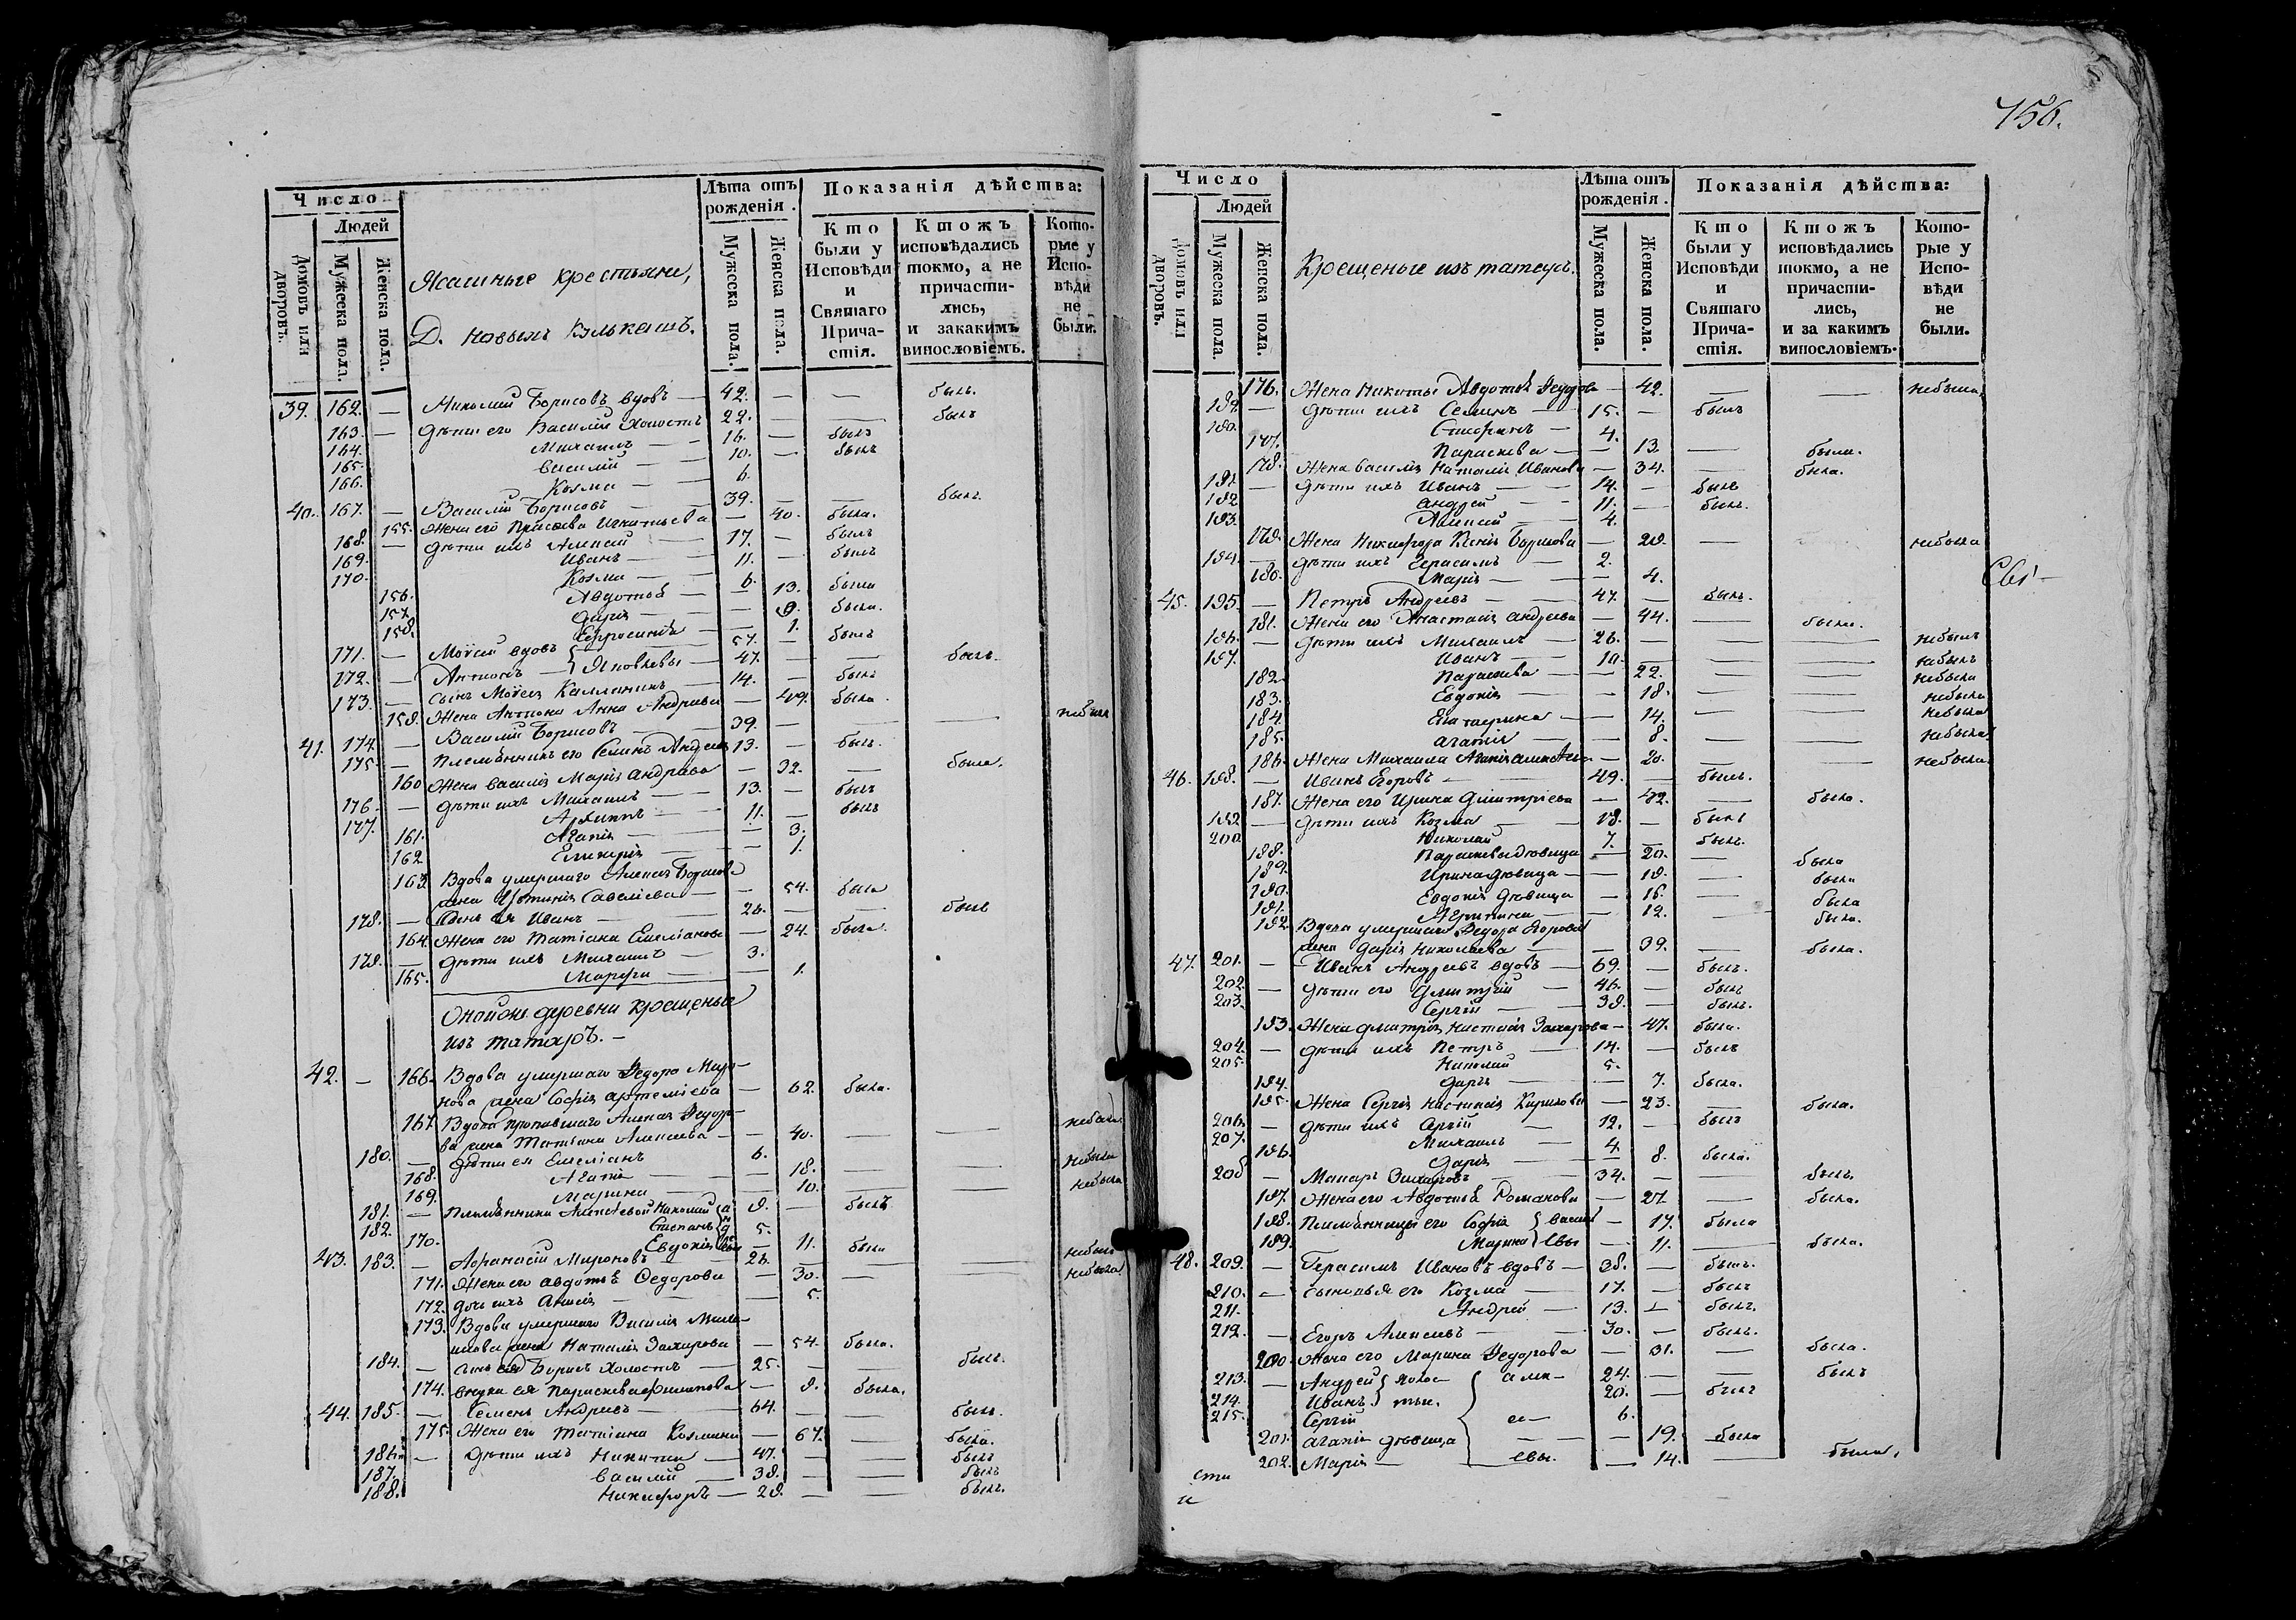 Число
Людей
Домовъ или дворовъ.
Мужеска пола.
Женска пола.
Ясашные крестьяне,
Д. новыхъ
Лѣта отъ рожденія.
Мужеска пола.
Женска пола.
Показанія дѣйства:
Кто были у Исповѣди и Святаго Прича-стія.
Ктожъ исповѣдались токмо, а не причасти-лись, и закакимъ винословіемъ.
Кото-рые у Испо-вѣди не были.
39. 162. — Николай Борисовъ вдовъ — 42. — — былъ.
163. — Дѣти его Василій холостъ 22. — — былъ
164. Михаилъ — 16. — былъ
165. Василій — 10. — былъ
166. Козма — 6.
40. 167. — Василій Борисовъ — 39. — — былъ.
155. Жена его Игнатьева — 40. была.
168. — Дѣти ихъ Алексей — 17. — былъ
169. Иванъ — 11. — былъ
170. Козма — 6.
156. Авдотья — 13. была
157. Дарія — 9. была.
158. Ефросинія — 1.
171. — Моѵсей вдовъ } Яковлевы 57. — былъ
172. — Антонъ — 47. — — былъ.
173. — Сынъ Моѵсея Каллиникъ — 14. — былъ
159. Жена Антона Анна Андреева — 49. была.
41. 174. — Василій Борисовъ — 39. — — — небылъ
175. — Племянникъ его Семенъ 13. — былъ.
160 Жена Василія Марія Андреева — 32. — была.
176. — Дѣти ихъ Михаилъ — 13. — былъ
177. Архиппъ — 11. — былъ
161. Агапія — 3.
162 Гликерія — 1.
163. Вдова умершаго Алексея Борисова
жена Устинія Савеліева — 54. была
178. — Сынъ ея Иванъ — 26. — — былъ
164. Жена его Татіана Емеліанова — 24. была.
179. — Дѣти ихъ Михаилъ — 3.
165. Марфа — 1.
Онойже деревни крещеные
изъ татаръ. —
42. — 166. Вдова умершаго Федора Миро-
нова жена Софія Артеміева — 62. была.
167. Вдова пропавшаго Алексея Федоро-
ва жена Татіана Алексеева — 40. — — небыла
180. — Дѣти ея Емеліанъ 6.
168. Агапія — 18. — — небыла
169. Марина — 10. — — небыла
181. — Племянники Николай 9. — былъ
182. Степанъ 5.
170. Евдокія — 11. была
43. 183. — Афанасій Мироновъ — 26. — — небылъ
171. Жена его Авдотья Федорова — 30. — — небыла
172. Дочь ихъ Анисія — 5.
173. Вдова умершаго Василія
жена Наталія Захарова — 54. была.
184. — Сынъ ея Борисъ холостъ — 25. — — былъ.
174. Внука ея Параскева Филипова — 9. была.
44. 185. — Семенъ Андреевъ — 64. — — былъ.
175. Жена его Татіана Козмина — 67. — была.
186. — Дѣти ихъ Никита — 47. — — былъ
187. Василій — 38. — — былъ
188. Никифоръ — 29. — — былъ.
756.
Число
Людей
Домовъ или дворовъ.
Мужеска пола.
Женска пола.
Крещеные изъ татаръ.
Лѣта отъ рожденія.
Мужеска пола.
Женска пола.
Показанія дѣйства:
Кто были у Исповѣди и Святаго Прича-стія.
Ктожъ исповѣдались токмо, а не причасти-лись, и за какимъ винословіемъ.
Кото-рые у Испо-вѣди не были.
176. Жена Никиты Авдотья — 42. — — небыла
189. — Дѣти ихъ Семенъ — 15. — былъ
190. Стефанъ — 4.
177. Параскева — 13. — была.
178. Жена Василія Наталія Иванова — 34. — была.
191. — Дѣти ихъ Иванъ — 14. — былъ
192 Андрей — 11. — былъ.
193. Алексей — 4.
179. Жена Никифора Ксенія Борисова — 29. — — небыла
194. — Дѣти ихъ Герасимъ — 2.
180. Марія — 4.
45. 195. — Петръ Андреевъ — 47. — былъ.
181. Жена его Анастасія Андреева — 44. — была.
196. — Дѣти ихъ Михаилъ — 26. — — — небылъ
197. Иванъ — 10. — — — небылъ
182. Параскева — 22. — — небыла
183. Евдокія — 18. — — небыла
184. Екатерина — 14. — — небыла
185. Агапія — 8. — — небыла
186. Жена Михаила Агапія — 20. — — небыла.
46. 198. — Иванъ Егоровъ — 49. — былъ.
187. Жена его Ирина Дмитріева — 42. — была.
199. — Дѣти ихъ Козма — 18. — былъ
200. Николай — 7. — былъ.
188. Параскева дѣвица — 20. — была
189. Ирина дѣвица — 19. — была
190. Евдокія дѣвица — 16. — была
191. — 12. — была.
192. Вдова умершаго Федора Егорова
жена Дарія Николаева — 39. — была.
47. 201. — Иванъ Андреевъ вдовъ — 69. — былъ.
202. — Дѣти его Дмитрій — 46. — былъ
203. Сергій — 38. — былъ.
193. Жена Дмитрія Настасія Захарова — 47. была.
204. — Дѣти ихъ Петръ — 14. — былъ
205. Николай 5.
194. Дарья — 7. была.
195. Жена Сергія Настасія Кирилова — 23. — была.
206. — Дѣти ихъ — 12. — былъ
207. Михаилъ — 4.
196. Дарія — 8. была.
208 — Макаръ Захаровъ — 34. — — былъ.
197. Жена его Авдотья Романова — 27. — была.
198. Племянницы его Софія } Васил — 17. была
199. Марина } евы — 11. — была.
48. 209. — Герасимъ Ивановъ вдовъ — 38. — былъ.
210. — Сыновья его Козма — 17. — былъ
211. Андрей — 13. — былъ.
212. — Егоръ Алексеевъ — 30. — былъ.
200. Жена его Марина Федорова — 31. — была.
213. — Андрей } холос- { алек- 24. — — былъ
214. Иванъ } тые. 20. — былъ
215. Сергій се- 6.
201. Агапія дѣвица — 19. была
202. Марія — евы. — 14. — была.